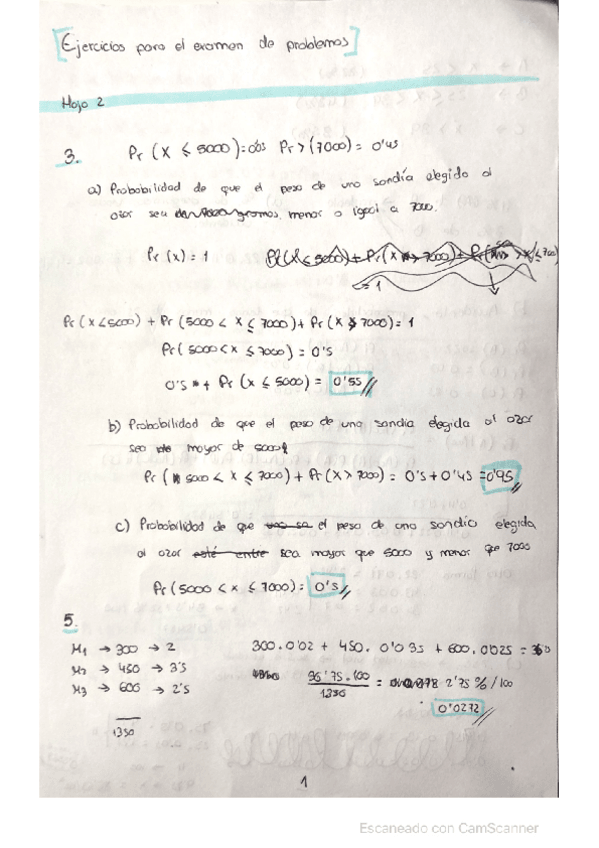 [Ejercicios para el examen de problemas]
Hoja 2
3. Pr (X ≤ 5000)=0'05 Pr > (7000) = 0'45
a) Probabilidad de que el peso de una sandía elegida al
azar sea menor o igual a 7000.
Pr (x) = 1
= 1
Pr (X ≤ 5000) + Pr (5000 < X ≤ 7000) + Pr (X > 7000) = 1
Pr (5000 < X ≤ 7000) = 0'5
0'5 + Pr (X ≤ 5000) = 0'55
b) Probabilidad de que el peso de una sandía elegida al azar
sea mayor de 5000
Pr (5000 < X ≤ 7000) + Pr (X > 7000) = 0'5 + 0'45 = 0'95
c) Probabilidad de que el peso de una sandía elegida
al azar sea mayor que 5000 y menor que 7000
Pr (5000 < X ≤ 7000) = 0'5
5.
M1 → 300 → 2 300 . 0'02 + 450 . 0'035 + 600 . 0'025 =
M2 → 450 → 3'5 36'75 . 100 / 1350 = 2'75 % / 100
M3 → 600 → 2'5 0'0272
1350
1
Escaneado con CamScanner